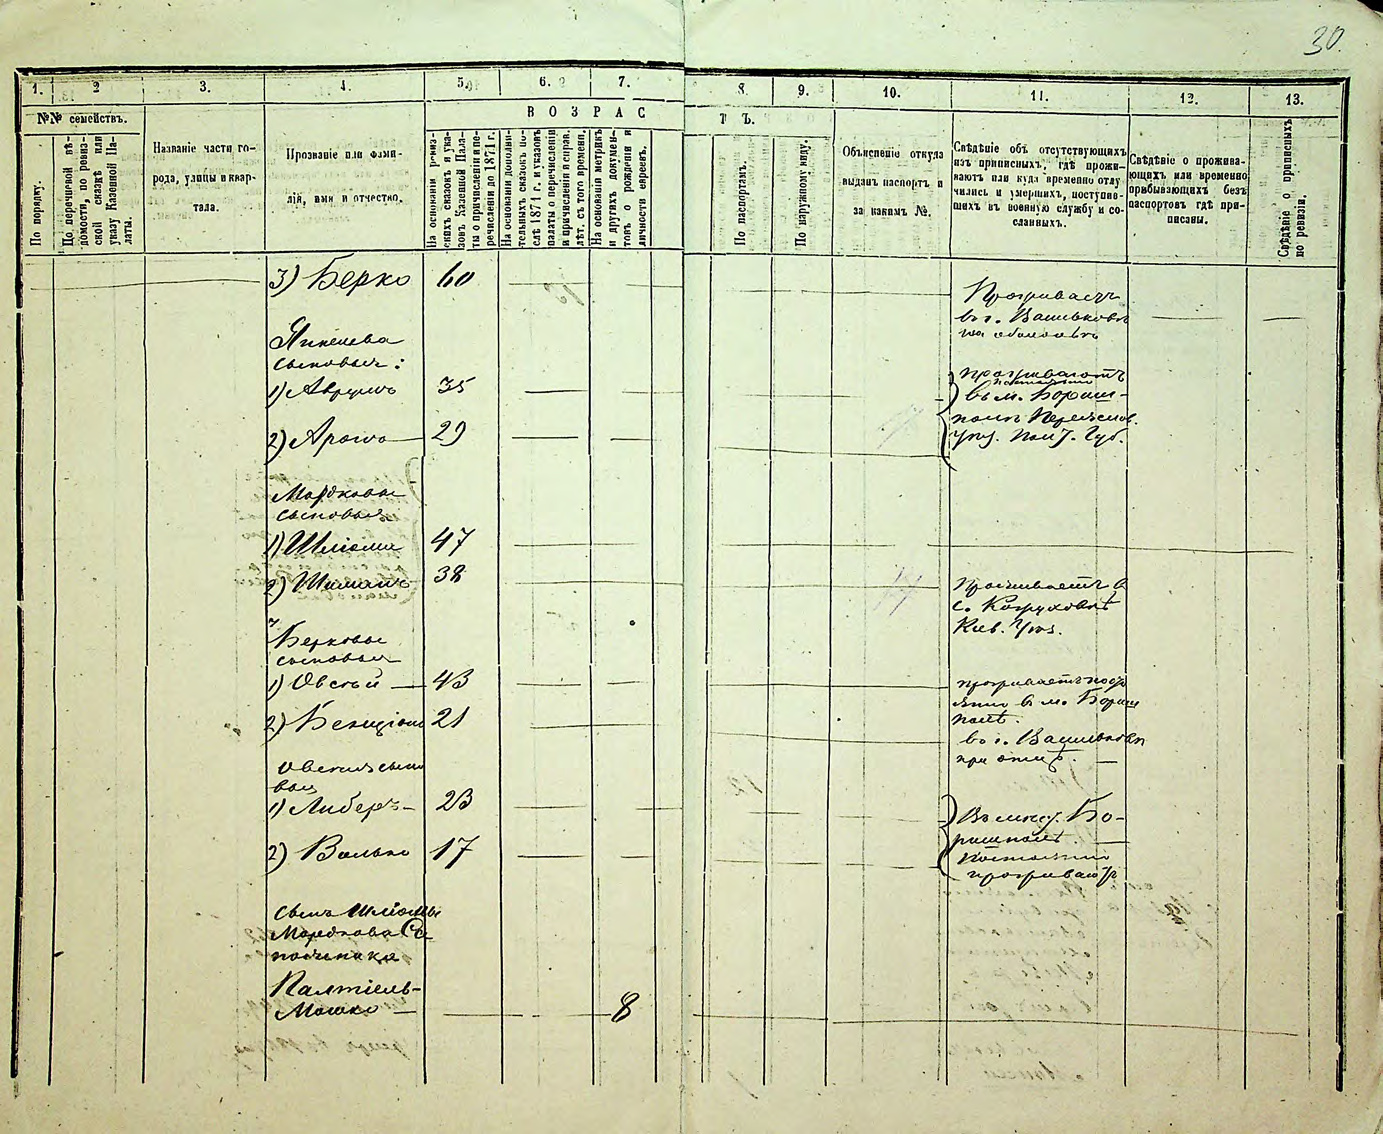 30
1. 2 3. 4. 5. 6. 7. 8. 9. 10. 11. 12. 13.
№№ семействъ.
ВОЗРАСТЪ.
По порядку.
По перечневой вѣ-
домости, по ревиз-
ской сказкѣ или
указу Казенной Па-
латы.
Названіе части го-
рода, улицы и квар-
тала.
Прозваніе или фами-
лій, имя и отчество.
На основаніи ревиз-
скихъ сказокъ и ука-
зовъ Казенной Пала-
ты о причисленіи и пе-
речисленіи до 1871 г.
На основаніи дополни-
тельныхъ сказокъ по-
слѣ 1871 г. и указовъ
палаты о перечисленіи
и причисленіи и справ.
лѣт. съ того времени.
На основаніи метрикъ
и другихъ докумен-
товъ о рожденіи и
личности евреевъ.
По паспортамъ.
По наружному виду.
Объясненіе откуда
выданъ паспортъ и
за какимъ №.
Свѣдѣніе объ отсутствующихъ
изъ приписныхъ, гдѣ прожи-
ваютъ или куда временно отлу
чились и умершихъ, поступив-
шихъ въ военную службу и со-
сланныхъ.
Свѣдѣніе о прожива-
ющихъ или временно
прибывающихъ безъ
паспортовъ гдѣ при-
писаны.
Свѣдѣніе о приписныхъ
по ревизіи.
3) Берко 60
Проживаетъ
въ г. Васильковѣ
сыновья:
1) Аврумъ 35
проживаютъ
въ м. Борис-
2) Аронъ 29
полѣ Переяслов.
Уѣз. Пол. Губ.
Мордковы
сыновья
1) Шлiома 47
2) Шиманъ 38
Проживаетъ въ
с.
Кіев. Уѣз.
Берковы
сыновья
1) Овсѣй 43
проживаетъ
въ м. Борис
полѣ.
2) Бенціонъ 21
въ г. Васильковѣ
при отцѣ.
Овсѣя сыно
вья
1) Либеръ 23
Въ мѣст. Бо-
рисполѣ
2) Волько 17
постоянно
проживаютъ
сынъ Шліомы
Мордкова Са
пожника
Палтіель-
Мошко 8